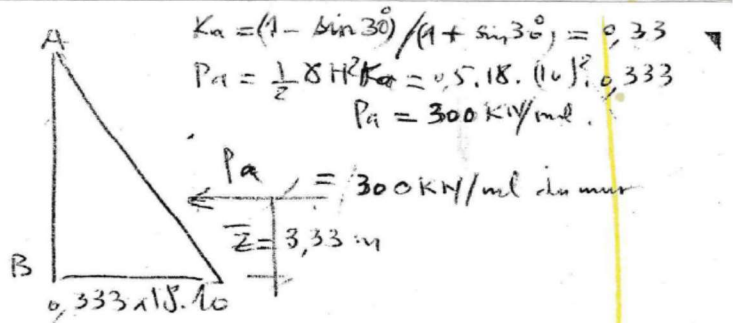 A
Ka = (1 - sin 30°) / (1 + sin 30°) = 0,33
Pa = 1/2 γ H² Ka = 0,5.18. (10)². 0,333
Pa = 300 KN/ml.
Pa = 300 KN/ml du mur
Z̅ = 3,33 m
B
0,333 x 18.10